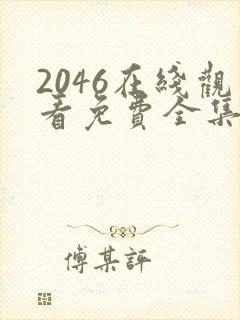 2046在綫觀
看免費全集
傅某評